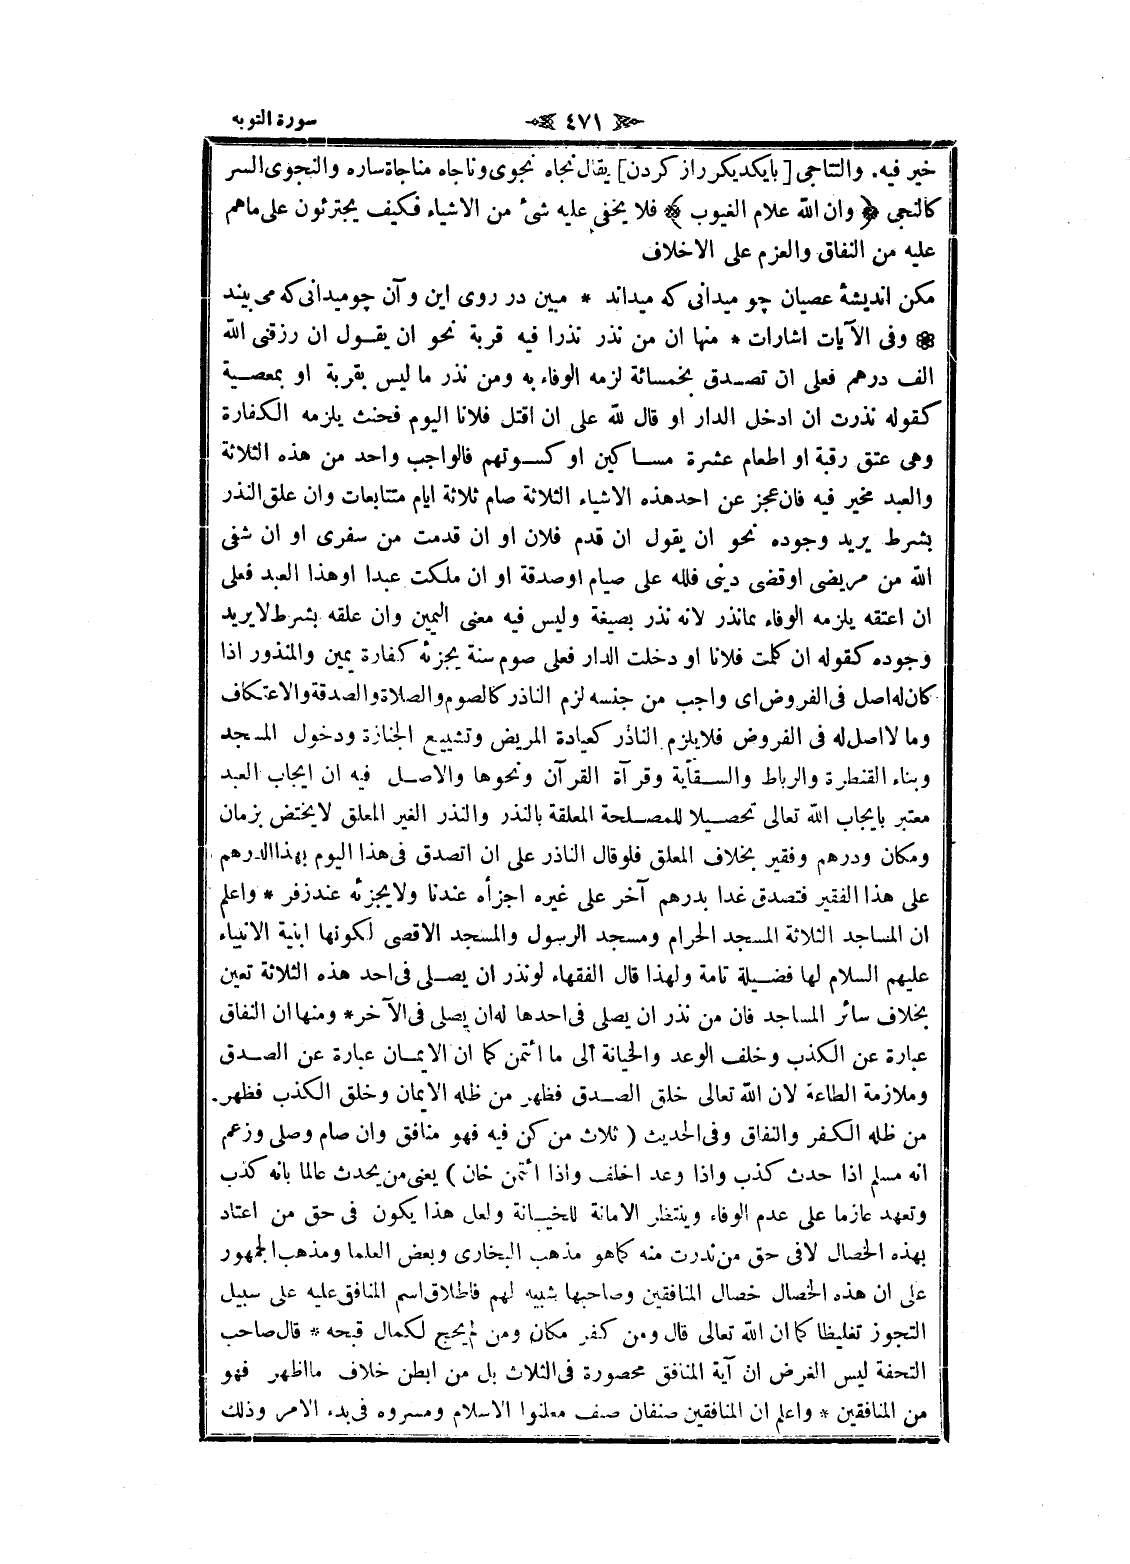 سورة التوبه ﴿ ٤٧١ ﴾
خير فيه. والتناجى [بايكديكر راز كردن] يقال نجاه نجوى وناجاه مناجاة ساره والنجوى السر
كالنجى ﴿ وان الله علام الغيوب ﴾ فلا يخفى عليه شئ من الاشياء فكيف يجترئون على ماهم
عليه من النفاق والعزم على الاخلاف
مكن انديشۀ عصيان چو ميدانى كه ميداند * مبين در روى اين و آن چو ميدانى كه مى بيند
❁ وفى الآيات اشارات * منها ان من نذر نذرا فيه قربة نحو ان يقول ان رزقنى الله
الف درهم فعلى ان تصدق بخمسمائة لزمه الوفاء به ومن نذر ما ليس بقربة او بمعصية
كقوله نذرت ان ادخل الدار او قال لله على ان اقتل فلانا اليوم فحنث يلزمه الكفارة
وهى عتق رقبة او اطعام عشرة مساكين او كسوتهم فالواجب واحد من هذه الثلاثة
والعبد مخير فيه فان عجز عن احد هذه الاشياء الثلاثة صام ثلاثة ايام متتابعات وان علق النذر
بشرط يريد وجوده نحو ان يقول ان قدم فلان او ان قدمت من سفرى او ان شفى
الله من مريضى او قضى دينى فلله على صيام او صدقة او ان ملكت عبدا او هذا العبد فعلى
ان اعتقه يلزمه الوفاء بمانذر لانه نذر بصيغة وليس فيه معنى اليمين وان علقه بشرط لايريد
وجوده كقوله ان كلمت فلانا او دخلت الدار فعلى صوم سنة يجزئه كفارة يمين والمنذور اذا
كان له اصل فى الفروض اى واجب من جنسه لزم الناذر كالصوم والصلاة والصدقة والاعتكاف
وما لااصل له فى الفروض فلايلزم الناذر كعيادة المريض وتشييع الجنازة ودخول المسجد
وبناء القنطرة والرباط والسقاية وقرآة القرآن ونحوها والاصل فيه ان ايجاب العبد
معتبر بايجاب الله تعالى تحصيلا للمصلحة المعلقة بالنذر والنذر الغير المعلق لايختض بزمان
ومكان ودرهم وفقير بخلاف المعلق فلو قال الناذر على ان اتصدق فى هذا اليوم بهذا الدرهم
على هذا الفقير فتصدق غدا بدرهم آخر على غيره اجزأه عندنا ولا يجزئه عند زفر * واعلم
ان المساجد الثلاثة المسجد الحرام ومسجد الرسول والمسجد الاقصى لكونها ابنية الانبياء
عليهم السلام لها فضيلة تامة ولهذا قال الفقهاء لو نذر ان يصلى فى احد هذه الثلاثة تعين
بخلاف سائر المساجد فان من نذر ان يصلى فى احدها له ان يصلى فى الآخر * ومنها ان النفاق
عبارة عن الكذب وخلف الوعد والخيانة الى ما ائتمن كما ان الايمان عبارة عن الصدق
وملازمة الطاعة لان الله تعالى خلق الصدق فظهر من ظله الايمان وخلق الكذب فظهر.
من ظله الكفر والنفاق وفى الحديث ( ثلاث من كن فيه فهو منافق وان صام وصلى وزعم
انه مسلم اذا حدث كذب واذا وعد اخلف واذا ائتمن خان ) يعنى من يحدث عالما بانه كذب
وتعهد عازما على عدم الوفاء وينتظر الامانة للخيانة ولعل هذا يكون فى حق من اعتاد
بهذه الخصال لافى حق من ندرت منه كماهو مذهب البخارى وبعض العلما ومذهب الجمهور
على ان هذه الخصال خصال المنافقين وصاحبها شبيه لهم فاطلاق اسم المنافق عليه على سبيل
التجوز تغليظا كما ان الله تعالى قال ومن كفر مكان ومن لم يحج لكمال قبحه * قال صاحب
التحفة ليس الغرض ان آية المنافق محصورة فى الثلاث بل من ابطن خلاف مااظهر فهو
من المنافقين * واعلم ان المنافقين صنفان صنف معلنوا الاسلام ومسروه فى بدء الامر وذلك